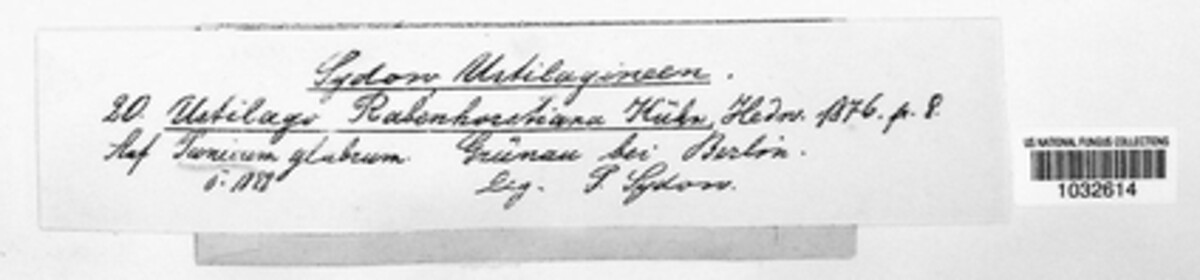 Sydow, Ustilagineen.
20. Ustilago Rabenhorstiana Kühn, Hedw. 1876. p. 8.
Auf Panicum glabrum. Grünau bei Berlin.
leg. P. Sydow.
US NATIONAL FUNGUS COLLECTIONS
1032614